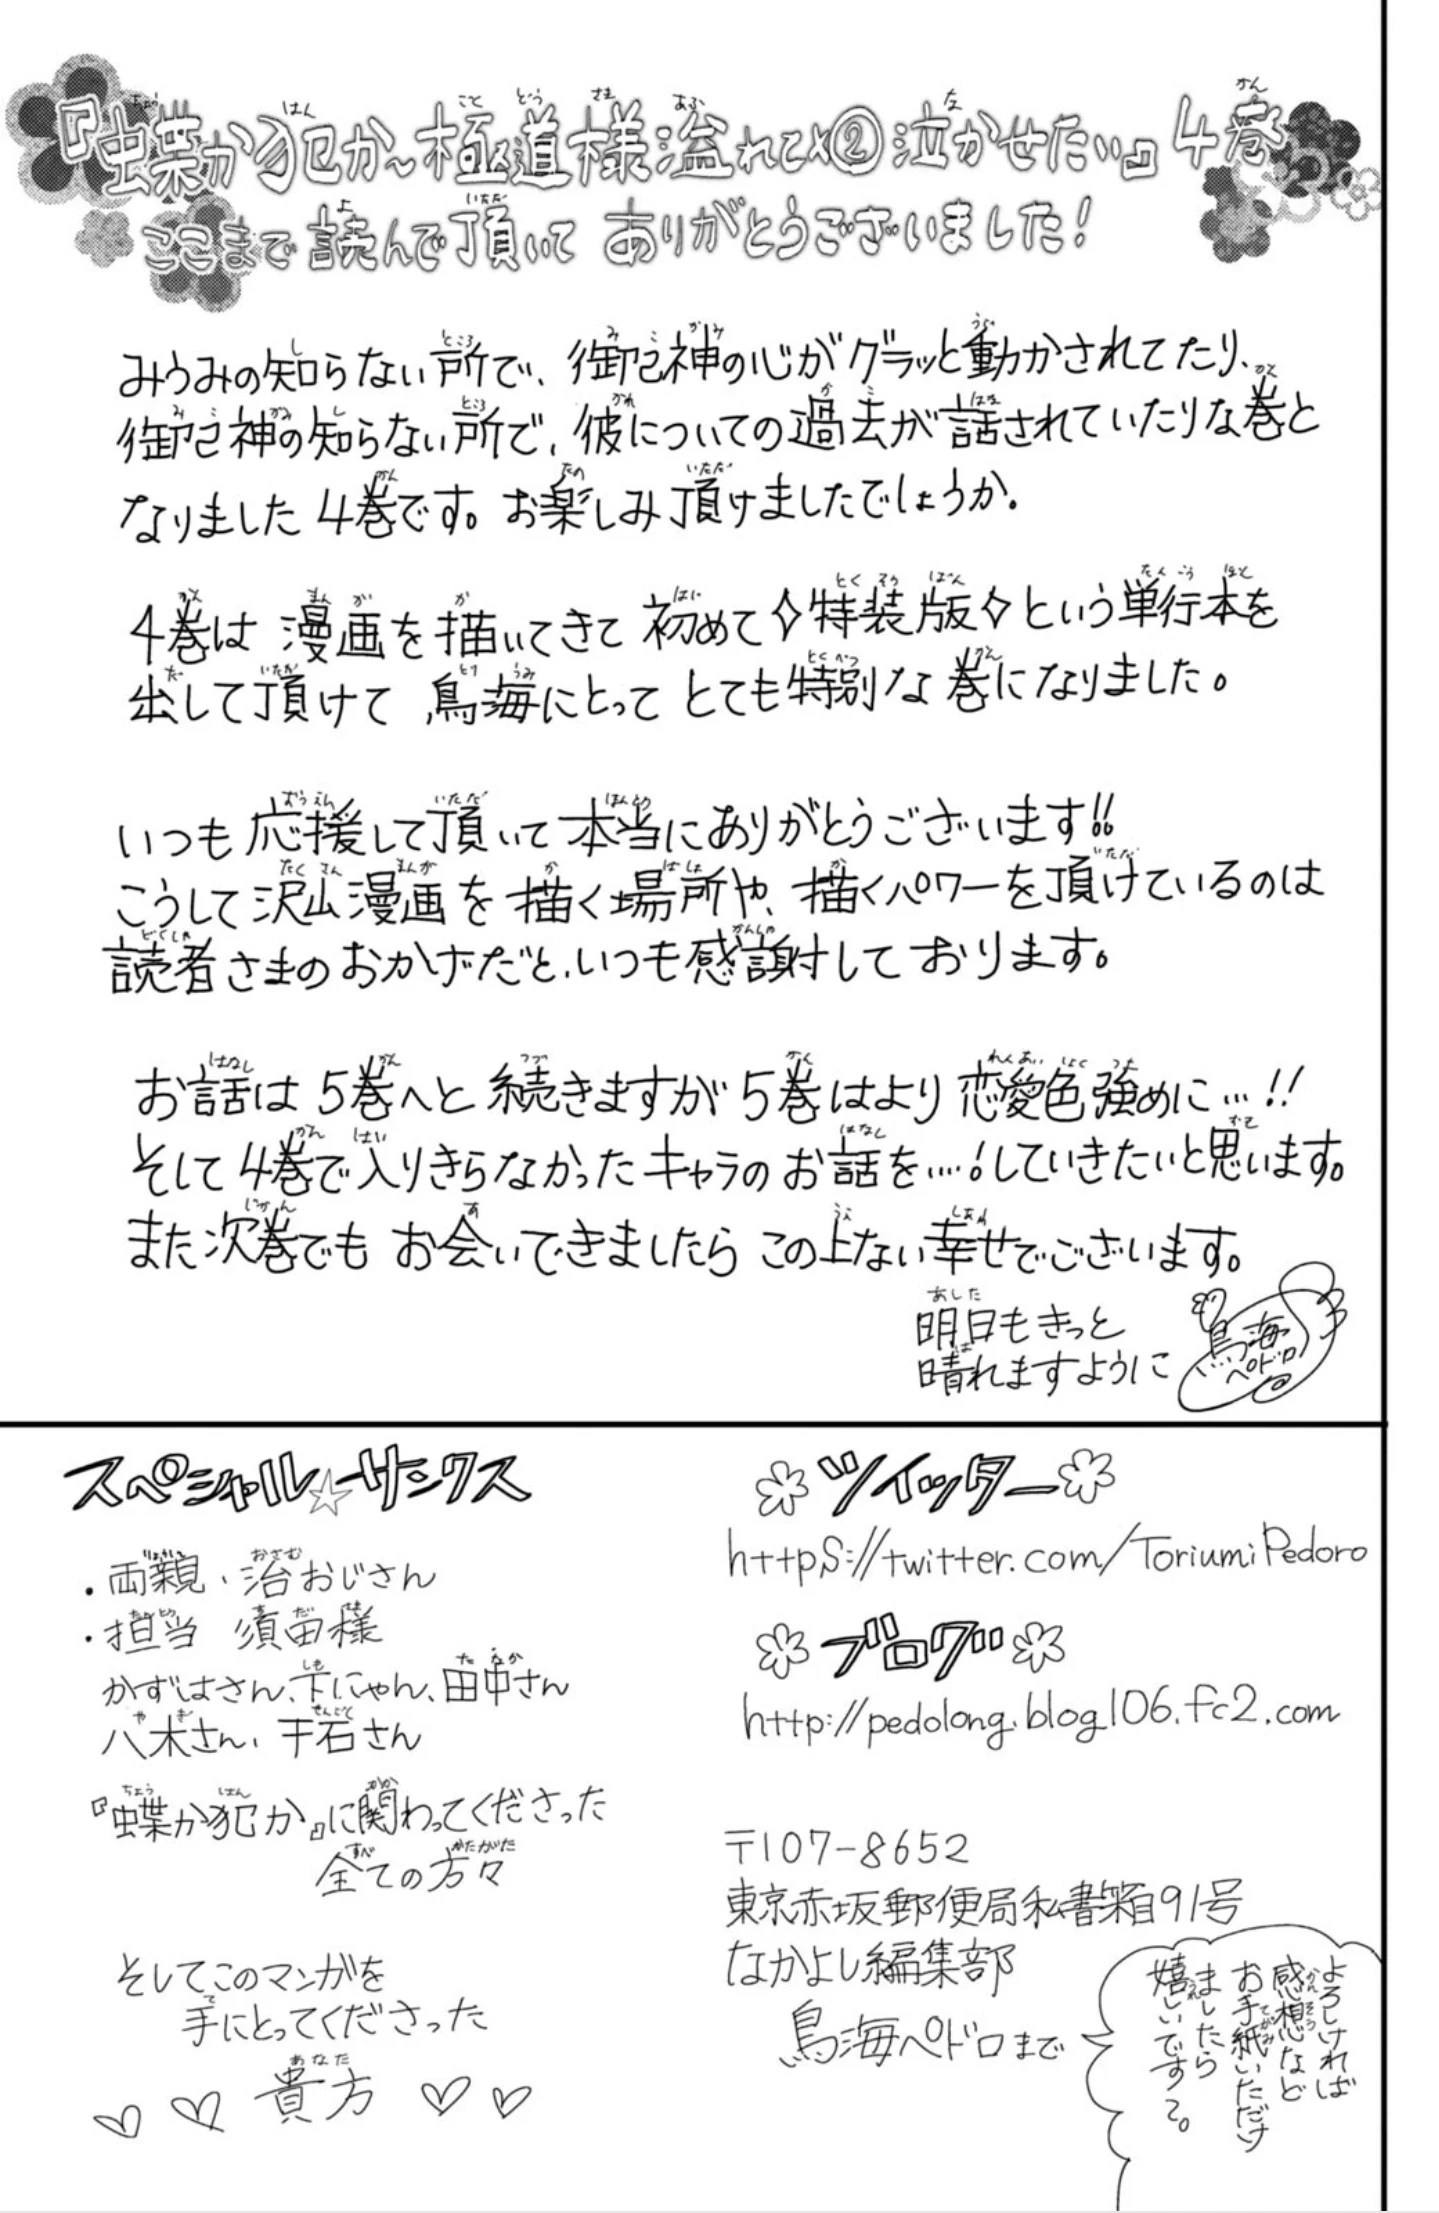 『蝶か犯か～極道様溢れて×②泣かせたい』4巻
ここまで読んで頂いてありがとうございました!
みうみの知らない所で、御己神の心がグラッと動かされてたり、
御己神の知らない所で、彼についての過去が話されていたりな巻と
なりました4巻です。お楽しみ頂けましたでしょうか。
4巻は漫画を描いてきて初めて✧特装版✧という単行本を
出して頂けて、鳥海にとってとても特別な巻になりました。
いつも応援して頂いて本当にありがとうございます!!
こうして沢山漫画を描く場所や、描くパワーを頂けているのは
読者さまのおかげだと、いつも感謝しております。
お話は5巻へと続きますが5巻はより恋愛色強めに…!!
そして4巻で入りきらなかったキャラのお話を….!していきたいと思います。
また次巻でもお会いできましたらこの上ない幸せでございます。
明日もきっと
晴れますように
鳥海
ペドロ
スペシャル☆サンクス
・両親、治おじさん
・担当 須田様
かずはさん、下にゃん、田中さん
八木さん、千石さん
『蝶か犯か』に関わってくださった
全ての方々
そしてこのマンガを
手にとってくださった
貴方
ツイッター
https://twitter.com/ToriumiPedoro
ブログ
http://pedolong.blog106.fc2.com
〒107-8652
東京赤坂郵便局私書箱91号
なかよし編集部
鳥海ペドロまで
よろしければ
感想など
お手紙いただけ
ましたら
嬉しいですって。